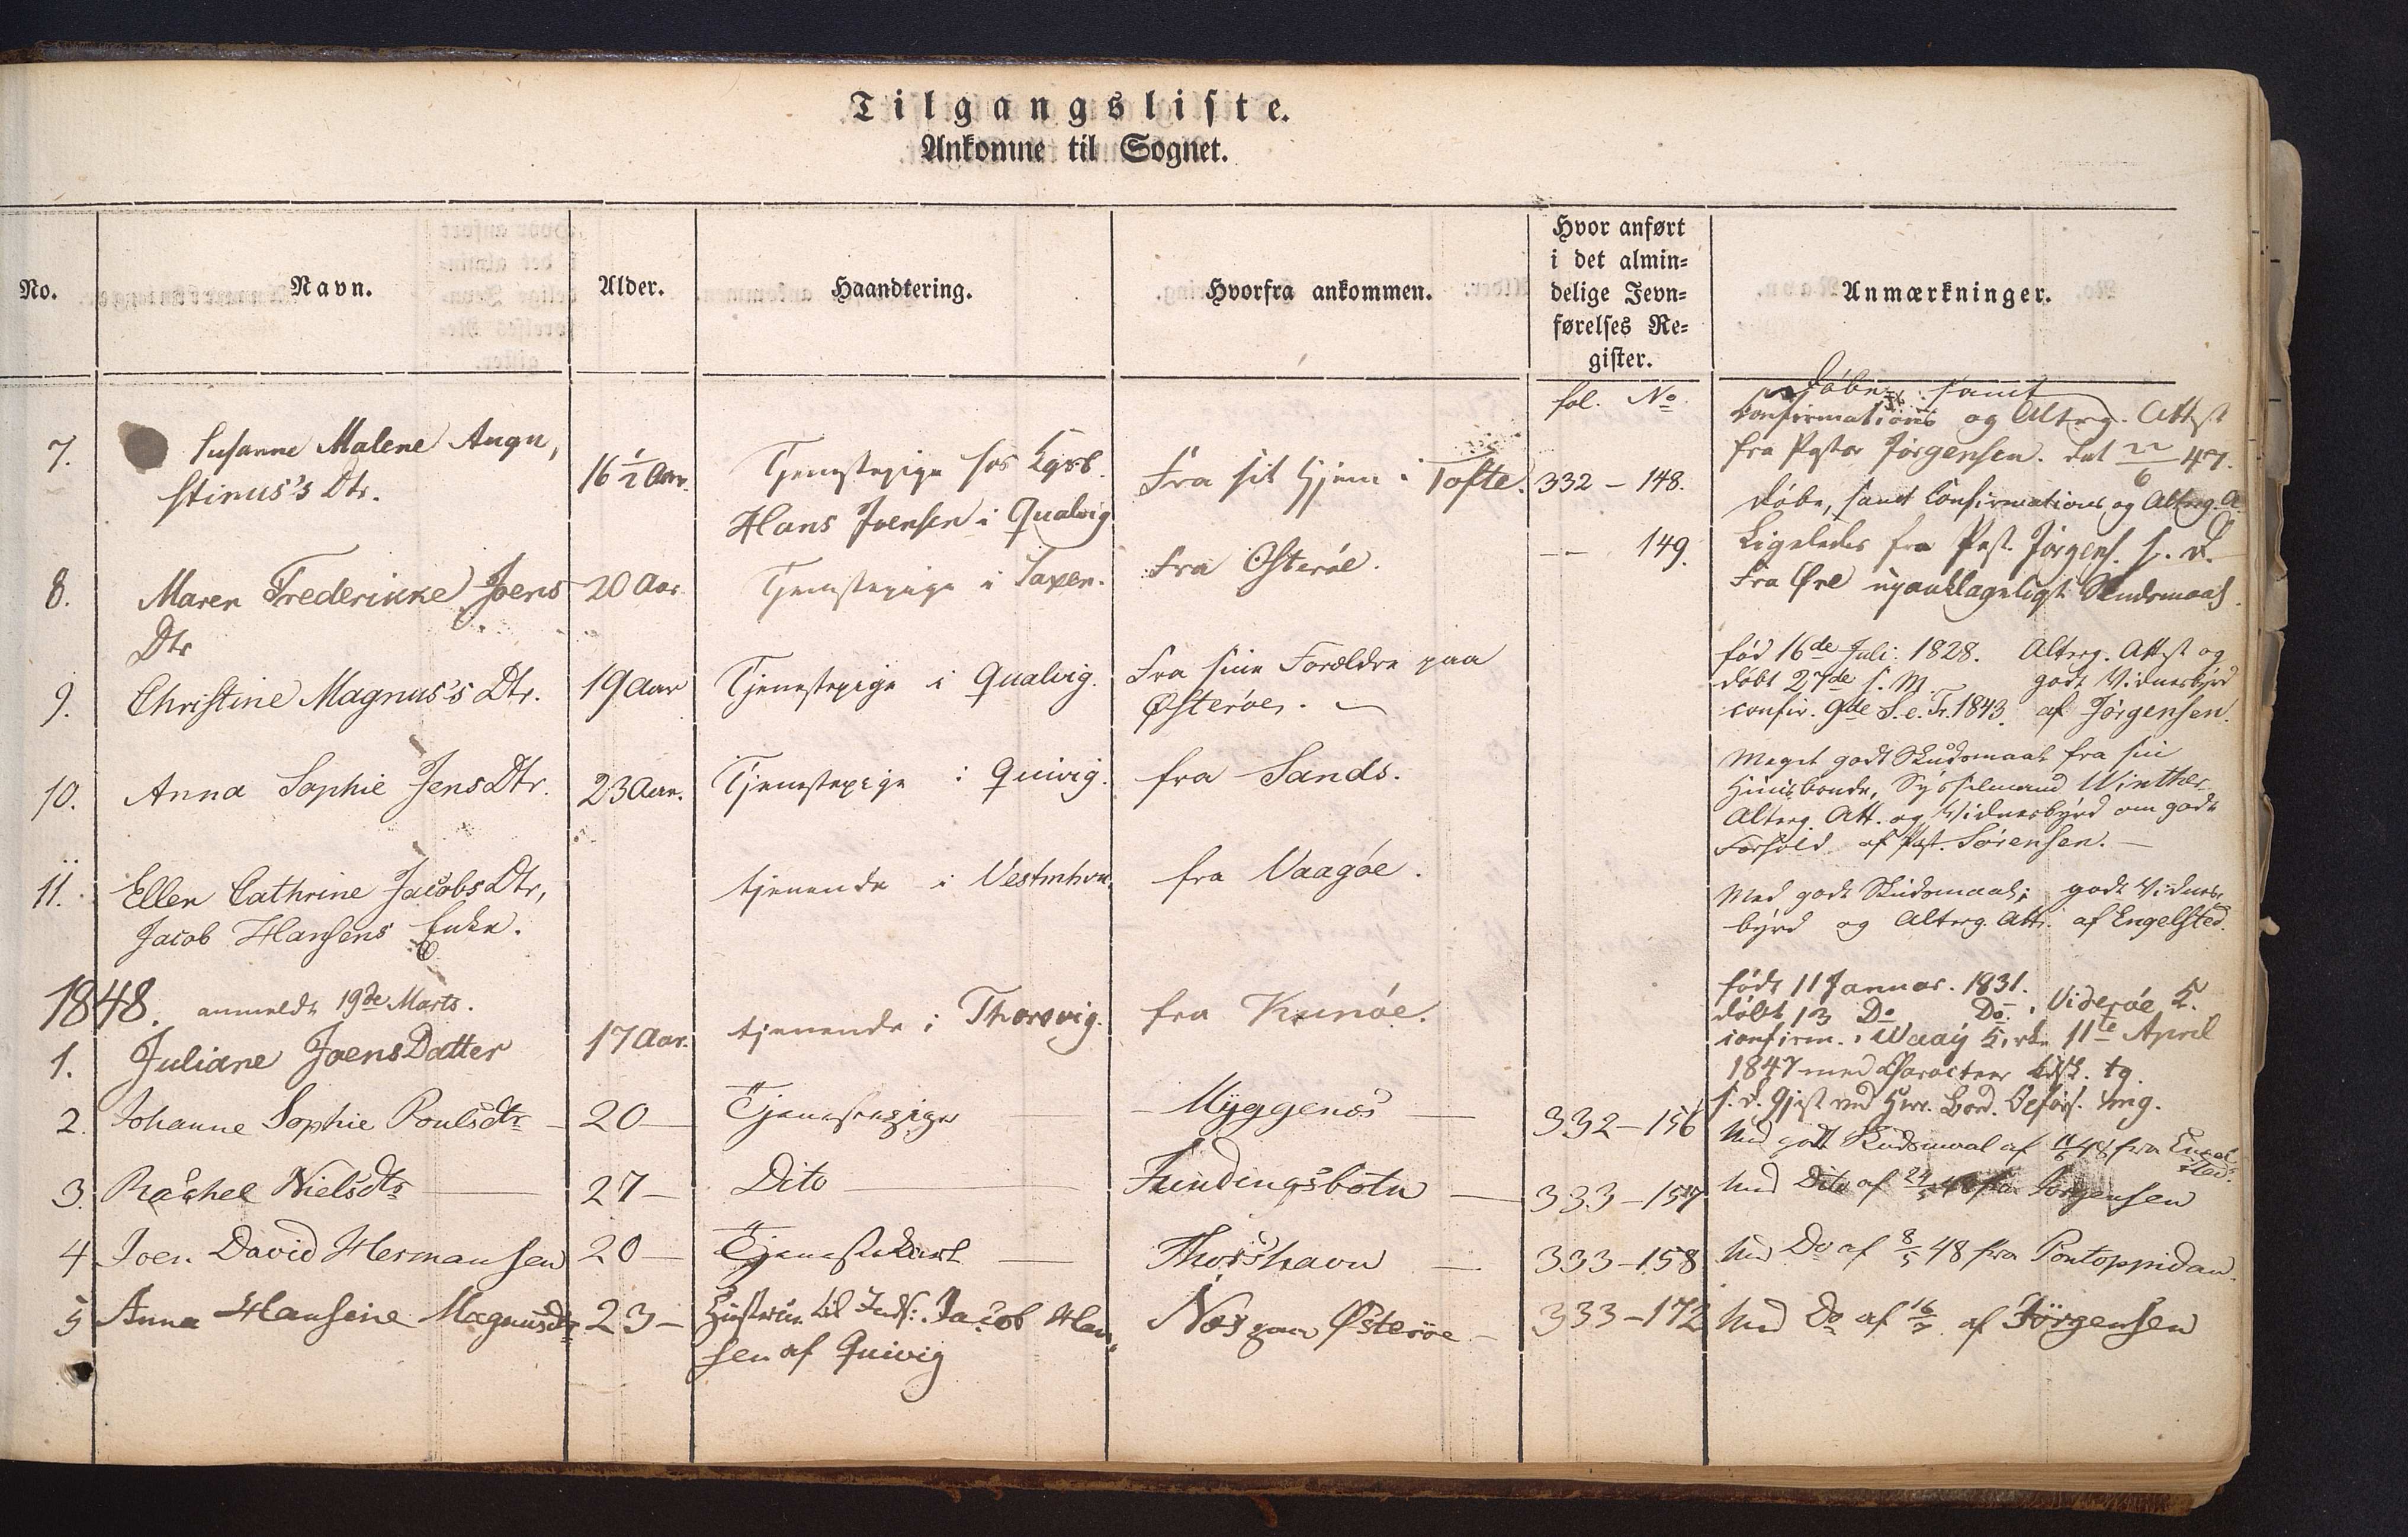 Tilgangsliste.
Ankomne til Sognet.
No.
Navn.
Alder.
Haandtering.
Hvorfra ankommen.
Hvor anført
i det almin=
delige Jevn=
førelses Re=
gister.
Anmærkninger.
fol. No
7.
Susanne Malene Augu,
stinus's Dtr.
16 1/2 Aar.
Tjenestepige hos Kgsb.
Hans Joensen i Qualvig
Fra sit Hjem i Tofte.
332 - 148.
Døbe, samt
Confirmations og Alterg. Attest
fra Pastor Jørgensen. dat 22/6 47.
8.
Maren Frederikke Joens
Dtr
20 Aar
Tjenestepige i Saxen.
Fra Østerøe.
-- 149.
Døbe, samt Confirmations og Alterg. A.
Ligeledes fra Past. Jørgens. s. D.
Fra Øre upaaklageligt Skudsmaal.
9.
Christine Magnus's Dtr.
19 Aar
Tjenestepige i Qualvig.
Fra sine Forældre paa
Østerøe.
fød 16de Juli 1828. Alterg. Attest og
døbt 27de s. M. godt Vidnesbyrd
confir. 9de S. e. Tr. 1843. af Jørgensen.
10.
Anna Sophie JensDtr.
23 Aar.
Tjenestepige i Quivig.
fra Sands.
Meget godt Skudsmaal fra sin
Huusbonde, Sysselmand Winther
Alterg. Att. og Vidnesbyrd om godt
Forhold af Past. Sørensen.
11.
Ellen Cathrine JacobsDtr,
Jacob Hansens Enke.
tjenende i Vestmhvn.
fra Vaagøe.
Med godt Skudsmaal; godt Vidnes,
byrd og Alterg. Att. af Engelsted.
1848. anmeldt 19de Marts.
1.
Juliane JoensDatter
17 Aar.
tjenende i Thorsvig.
fra Kunøe.
født 11 Januar. 1831.
døbt 13 Do Do. i Viderøe K.
confirm. i Waaij Kirke 11te April
1847 med Characteer
2.
Johanne Sophie Poulsdtr
20
Tjenestepige
Myggenæs
332-156
Med godt Skudsmaal af 48 fra Engel
sted.
3.
Rachel Nielsdtr
27
Dito
Fundingsbotn
333-157
Med Dito af 24/5 48 fra Jørgensen
4
Joen David Hermansen
20
Tjenestekarl
Thorshavn
333-158
Med Do af 8/5 48 fra Pontoppidan.
5
Anna Hansine Magnusdtr
23
Hustrue til Inds: Jacob Han
sen af Quivig
Næs paa Østerøe
333-172
Med Do af 16/7 af Jörgensen